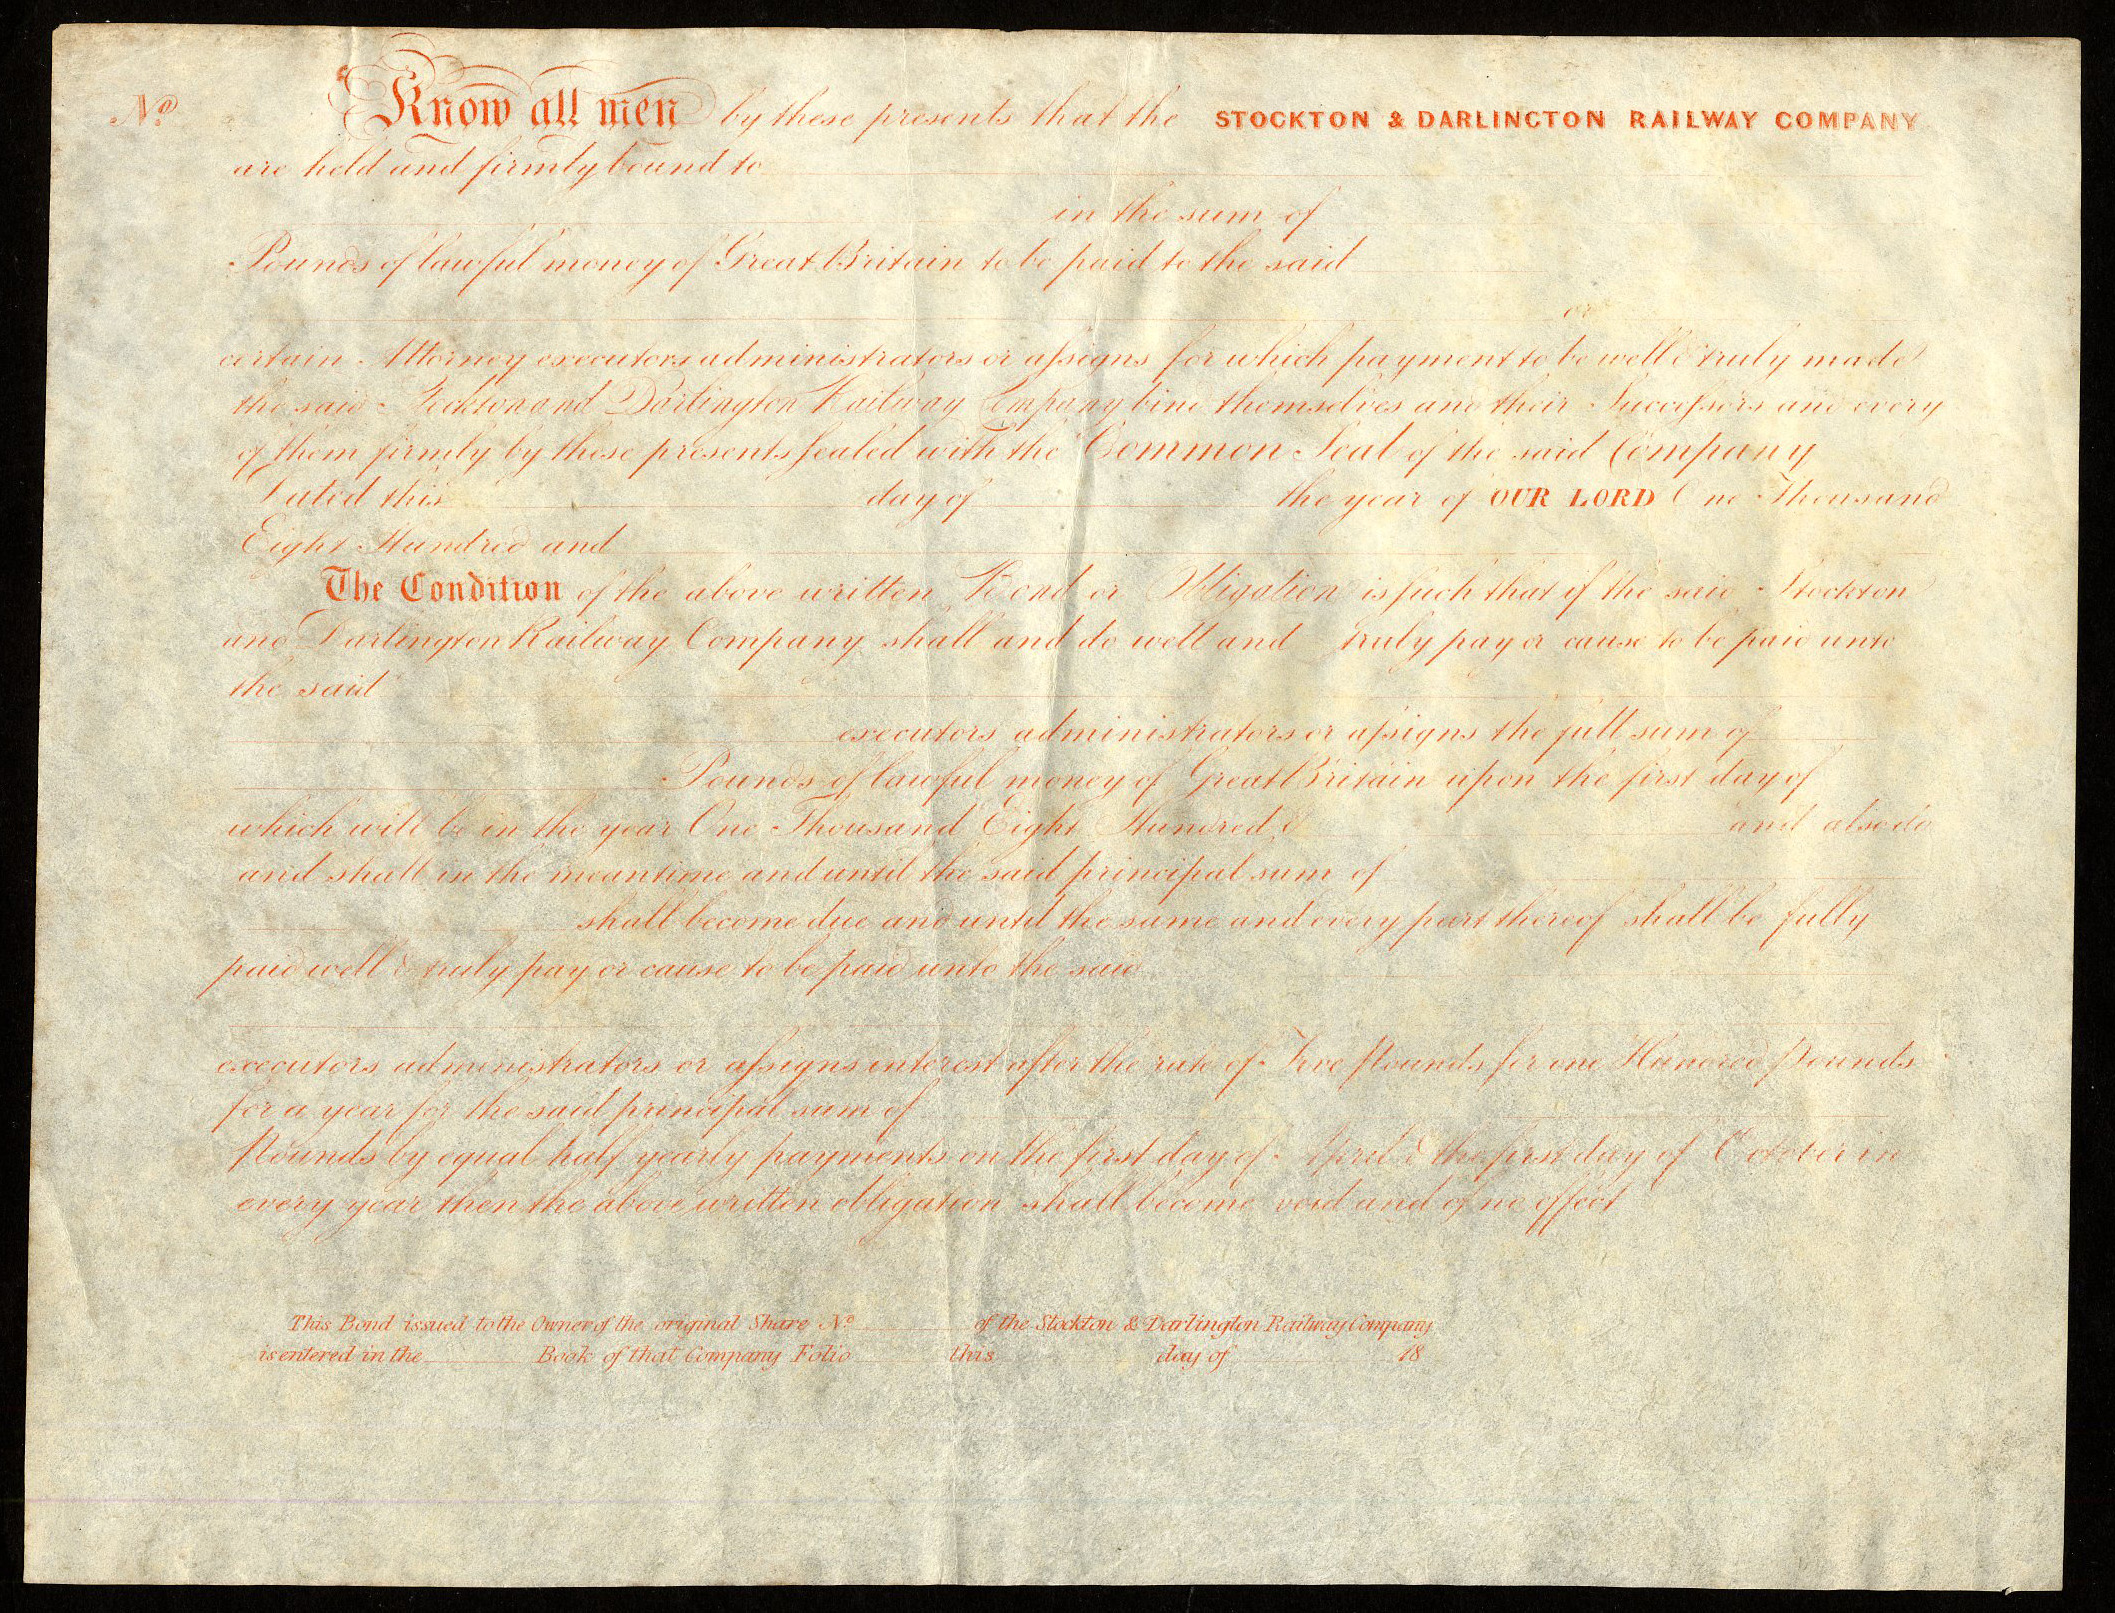 No Know all men by these presents that the STOCKTON & DARLINGTON RAILWAY COMPANY
are held and firmly bound to
in the sum of
Pounds of lawful money of Great Britain to be paid to the said
or
certain Attorney executors administrators or aſsigns for which payment to be well & truly made
the said Stockton and Darlington Railway Company bind themselves and their Succeſsors and every
of them firmly by these presents sealed with the Common Seal of the said Company
Dated this day of the year of OUR LORD One Thousand
Eight Hundred and
The Condition of the above written Bond or Obligation is such that if the said Stockton
and Darlington Railway Company shall and do well and truly pay or cause to be paid unto
the said
executors administrators or aſsigns the full sum of
Pounds of lawful money of Great Britain upon the first day of
which will be in the year One Thousand Eight Hundred & and also do
and shall in the meantime and until the said principal sum of
shall become due and until the same and every part thereof shall be fully
paid well & truly pay or cause to be paid unto the said
executors administrators or aſsigns interest after the rate of Five Pounds for one Hundred Pounds
for a year for the said principal sum of
Pounds by equal half yearly payments on the first day of April & the first day of October in
every year then the above written obligation shall become void and of no effect
This Bond issued to the Owner of the original Share No of the Stockton & Darlington Railway Company
is entered in the Book of that Company Folio this day of 18